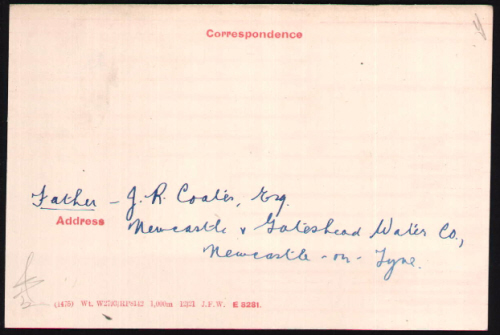 Correspondence
Father - J. R. Coates, Esq.
Address Newcastle & Gateshead Water Co.,
Newcastle - on - Tyne.
(1478) Wt. 1,000m 12/21 J.F.W. E 8281.